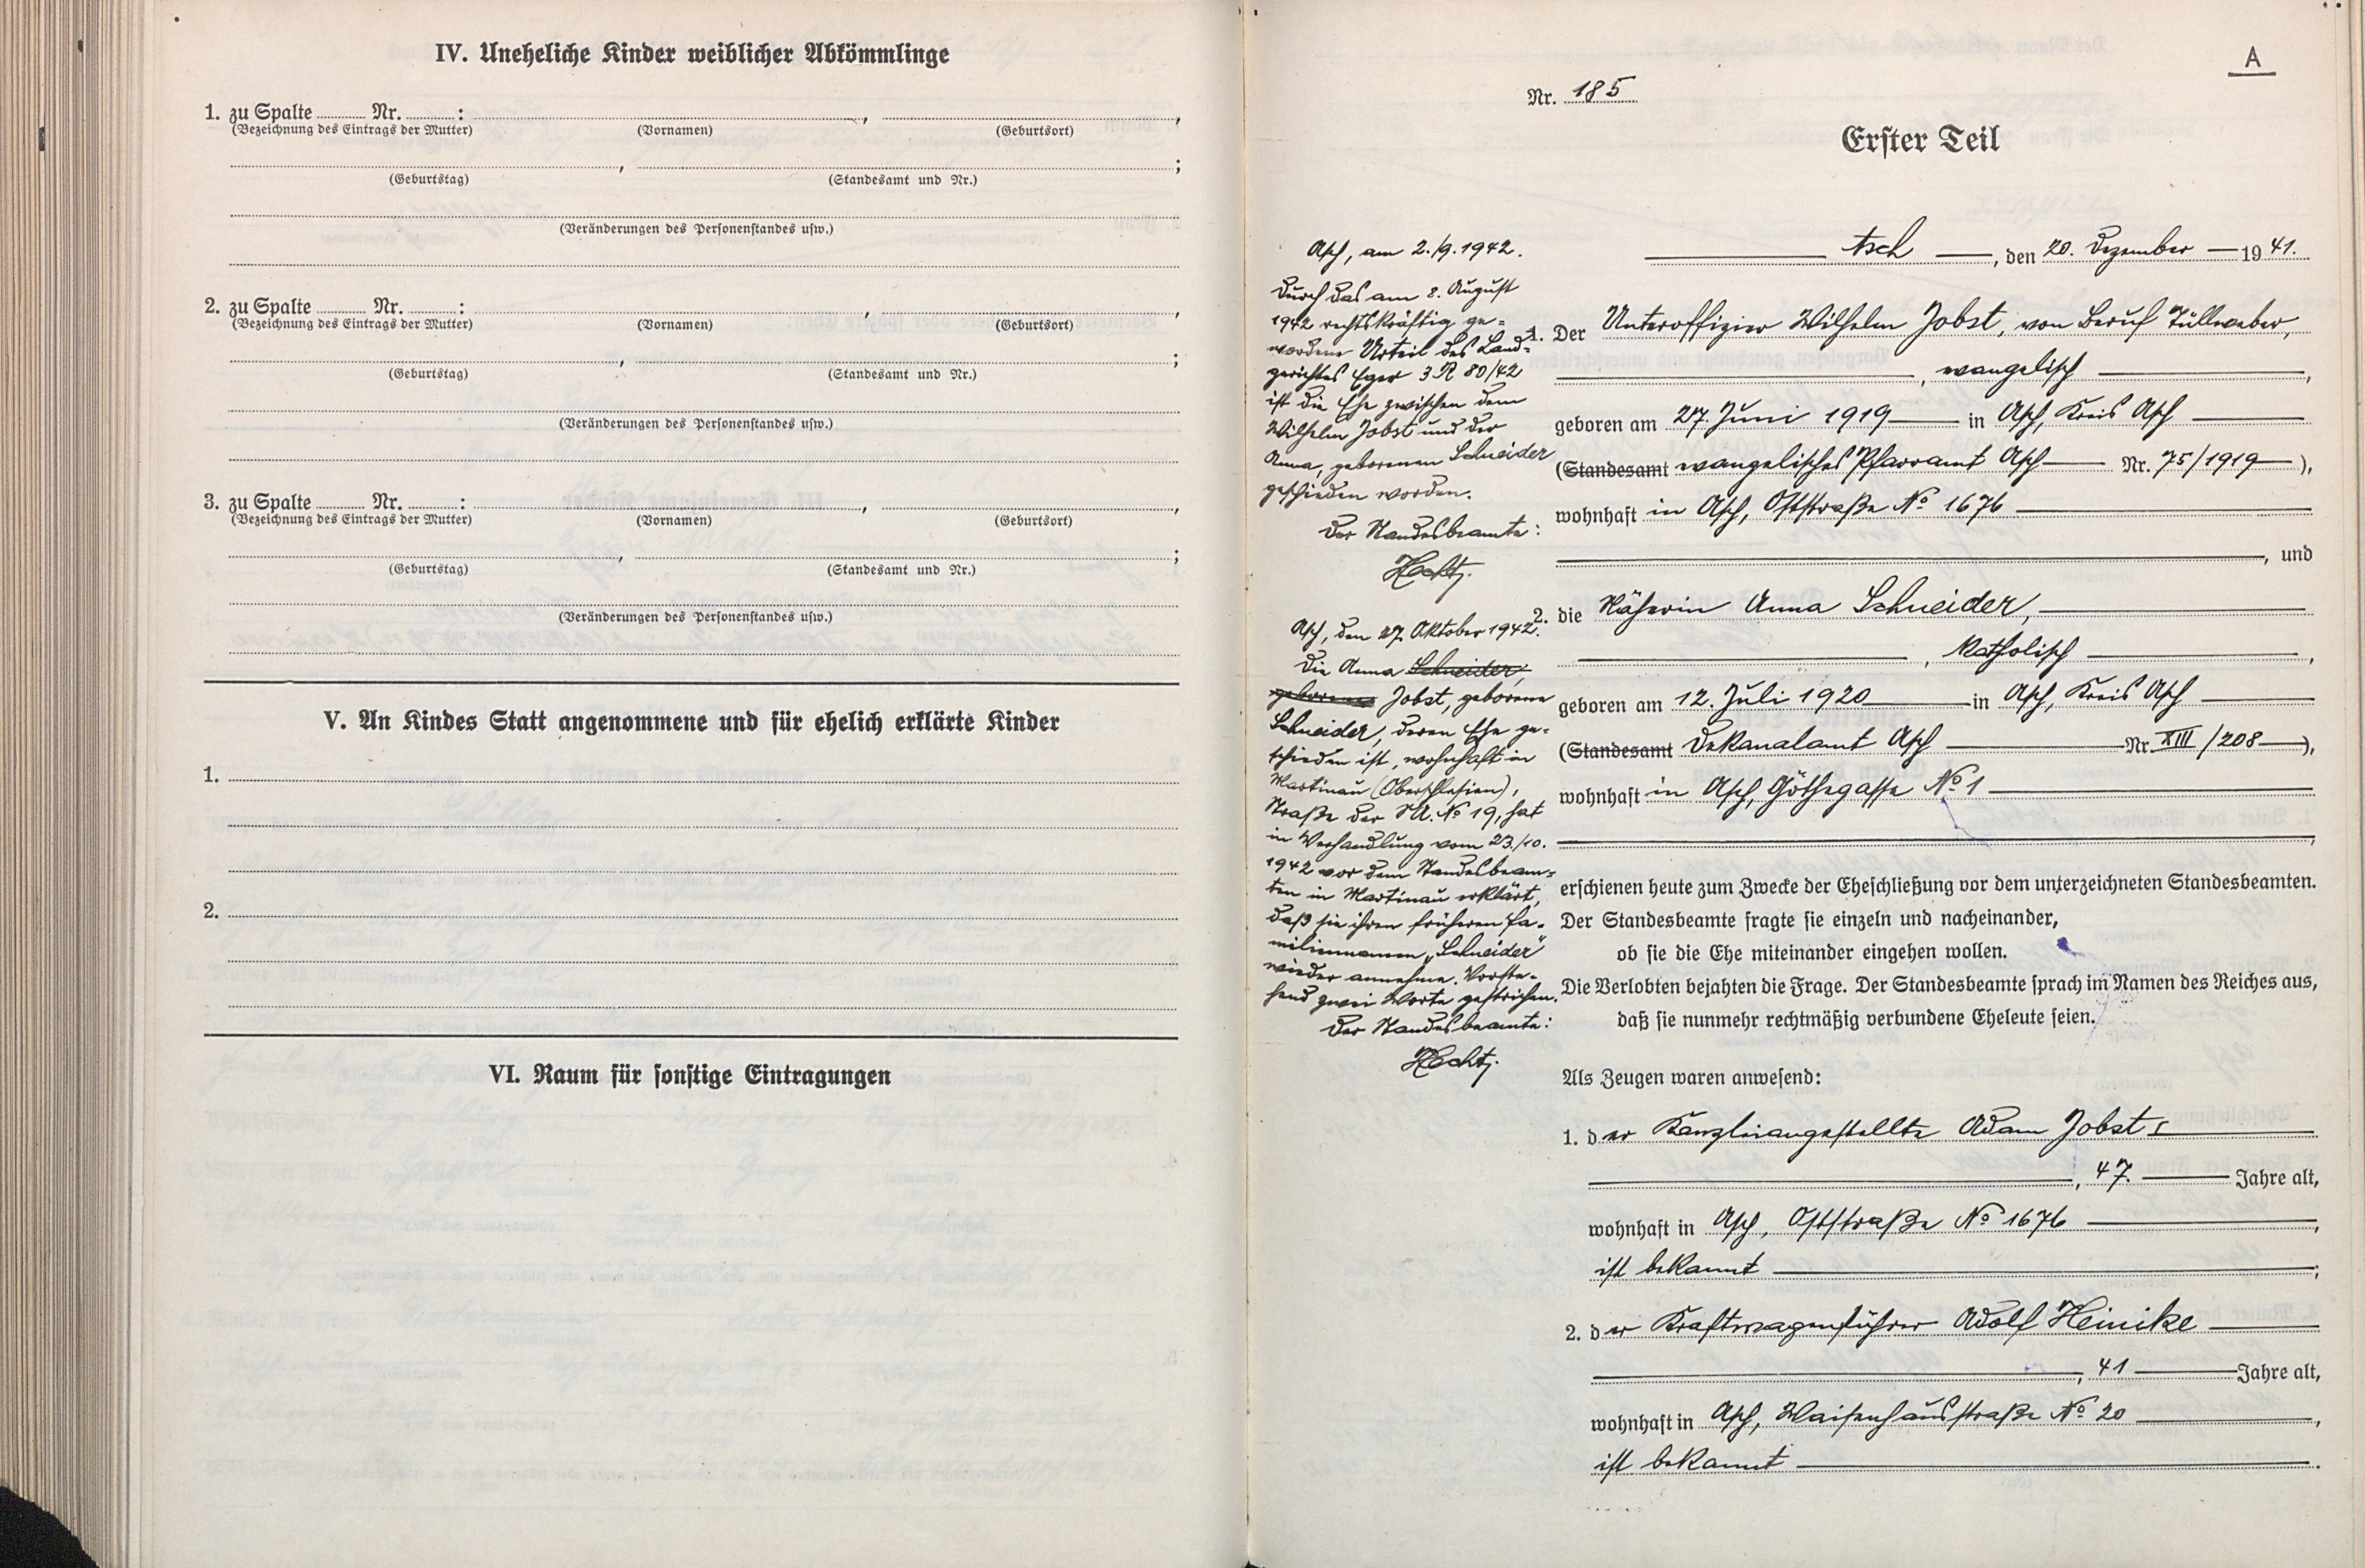 IV. Uneheliche Kinder weiblicher Abkömmlinge
1. zu Spalte ........ Nr. ........ : ........ , ........ ,
(Bezeichnung des Eintrags der Mutter) (Vornamen) (Geburtsort)
........ , ........ ;
(Geburtstag) (Standesamt und Nr.)
(Veränderungen des Personenstandes usw.)
2. zu Spalte ........ Nr. ........ : ........ , ........ ,
(Bezeichnung des Eintrags der Mutter) (Vornamen) (Geburtsort)
........ , ........ ;
(Geburtstag) (Standesamt und Nr.)
(Veränderungen des Personenstandes usw.)
3. zu Spalte ........ Nr. ........ : ........ , ........ ,
(Bezeichnung des Eintrags der Mutter) (Vornamen) (Geburtsort)
........ , ........ ;
(Geburtstag) (Standesamt und Nr.)
(Veränderungen des Personenstandes usw.)
V. An Kindes Statt angenommene und für ehelich erklärte Kinder
1.
2.
VI. Raum für sonstige Eintragungen
A
Nr. 185
Erster Teil
Asch, am 2./9.1942.
Durch das am 8. August
1942 rechtskräftig ge=
wordene Urteil des Land=
gerichtes Eger 3 R 80/42
ist die Ehe zwischen dem
Wilhelm Jobst und der
Anna, geborenen Schneider
geschieden worden.
Der Standesbeamte:
Asch, den 27. Oktober 1942.
Die Anna Schneider,
geborene Jobst, geborene
Schneider, deren Ehe ge-
schieden ist, wohnhaft in
Martinau (Oberschlesien),
Straße der SA. No 19, hat
in Verhandlung vom 23./10.
1942 vor dem Standesbeam=
ten in Martinau erklärt,
daß sie ihren früheren Fa-
miliennamen „Schneider"
wieder annehme. Vorste-
hend zwei Worte gestrichen.
Der Standesbeamte:
Asch, den 20. Dezember 1941.
1. Der Unteroffizier Wilhelm Jobst, von Beruf Tüllweber,
, evangelisch ,
geboren am 27. Juni 1919 in Asch, Kreis Asch
(Standesamt evangelisches Pfarramt Asch Nr. 75/1919 ),
wohnhaft in Asch, Oststraße No 1676
, und
2. die Näherin Anna Schneider,
, katholisch ,
geboren am 12. Juli 1920 in Asch, Kreis Asch
(Standesamt Dekanalamt Asch Nr. XIII/208 ),
wohnhaft in Asch, Göthegasse No 1
,
erschienen heute zum Zwecke der Eheschließung vor dem unterzeichneten Standesbeamten.
Der Standesbeamte fragte sie einzeln und nacheinander,
ob sie die Ehe miteinander eingehen wollen.
Die Verlobten bejahten die Frage. Der Standesbeamte sprach im Namen des Reiches aus,
daß sie nunmehr rechtmäßig verbundene Eheleute seien.
Als Zeugen waren anwesend:
1. der Kanzleiangestellte Adam Jobst,
, 47. Jahre alt,
wohnhaft in Asch, Oststraße No 1676 ,
ist bekannt ;
2. der Kraftwagenführer Adolf Heinike
, 41 Jahre alt,
wohnhaft in Asch, Waisenhausstraße No 20 ,
ist bekannt .